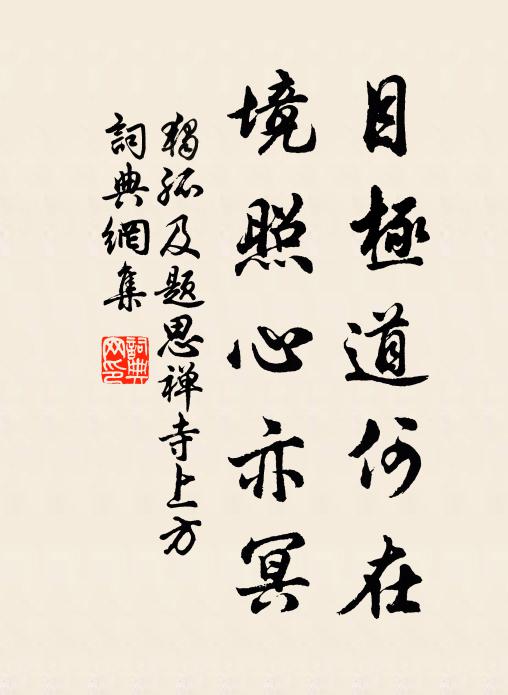 目極道何在
境照心亦冥
獨孤及题思禅寺上方
詞典網集
詞典
网印